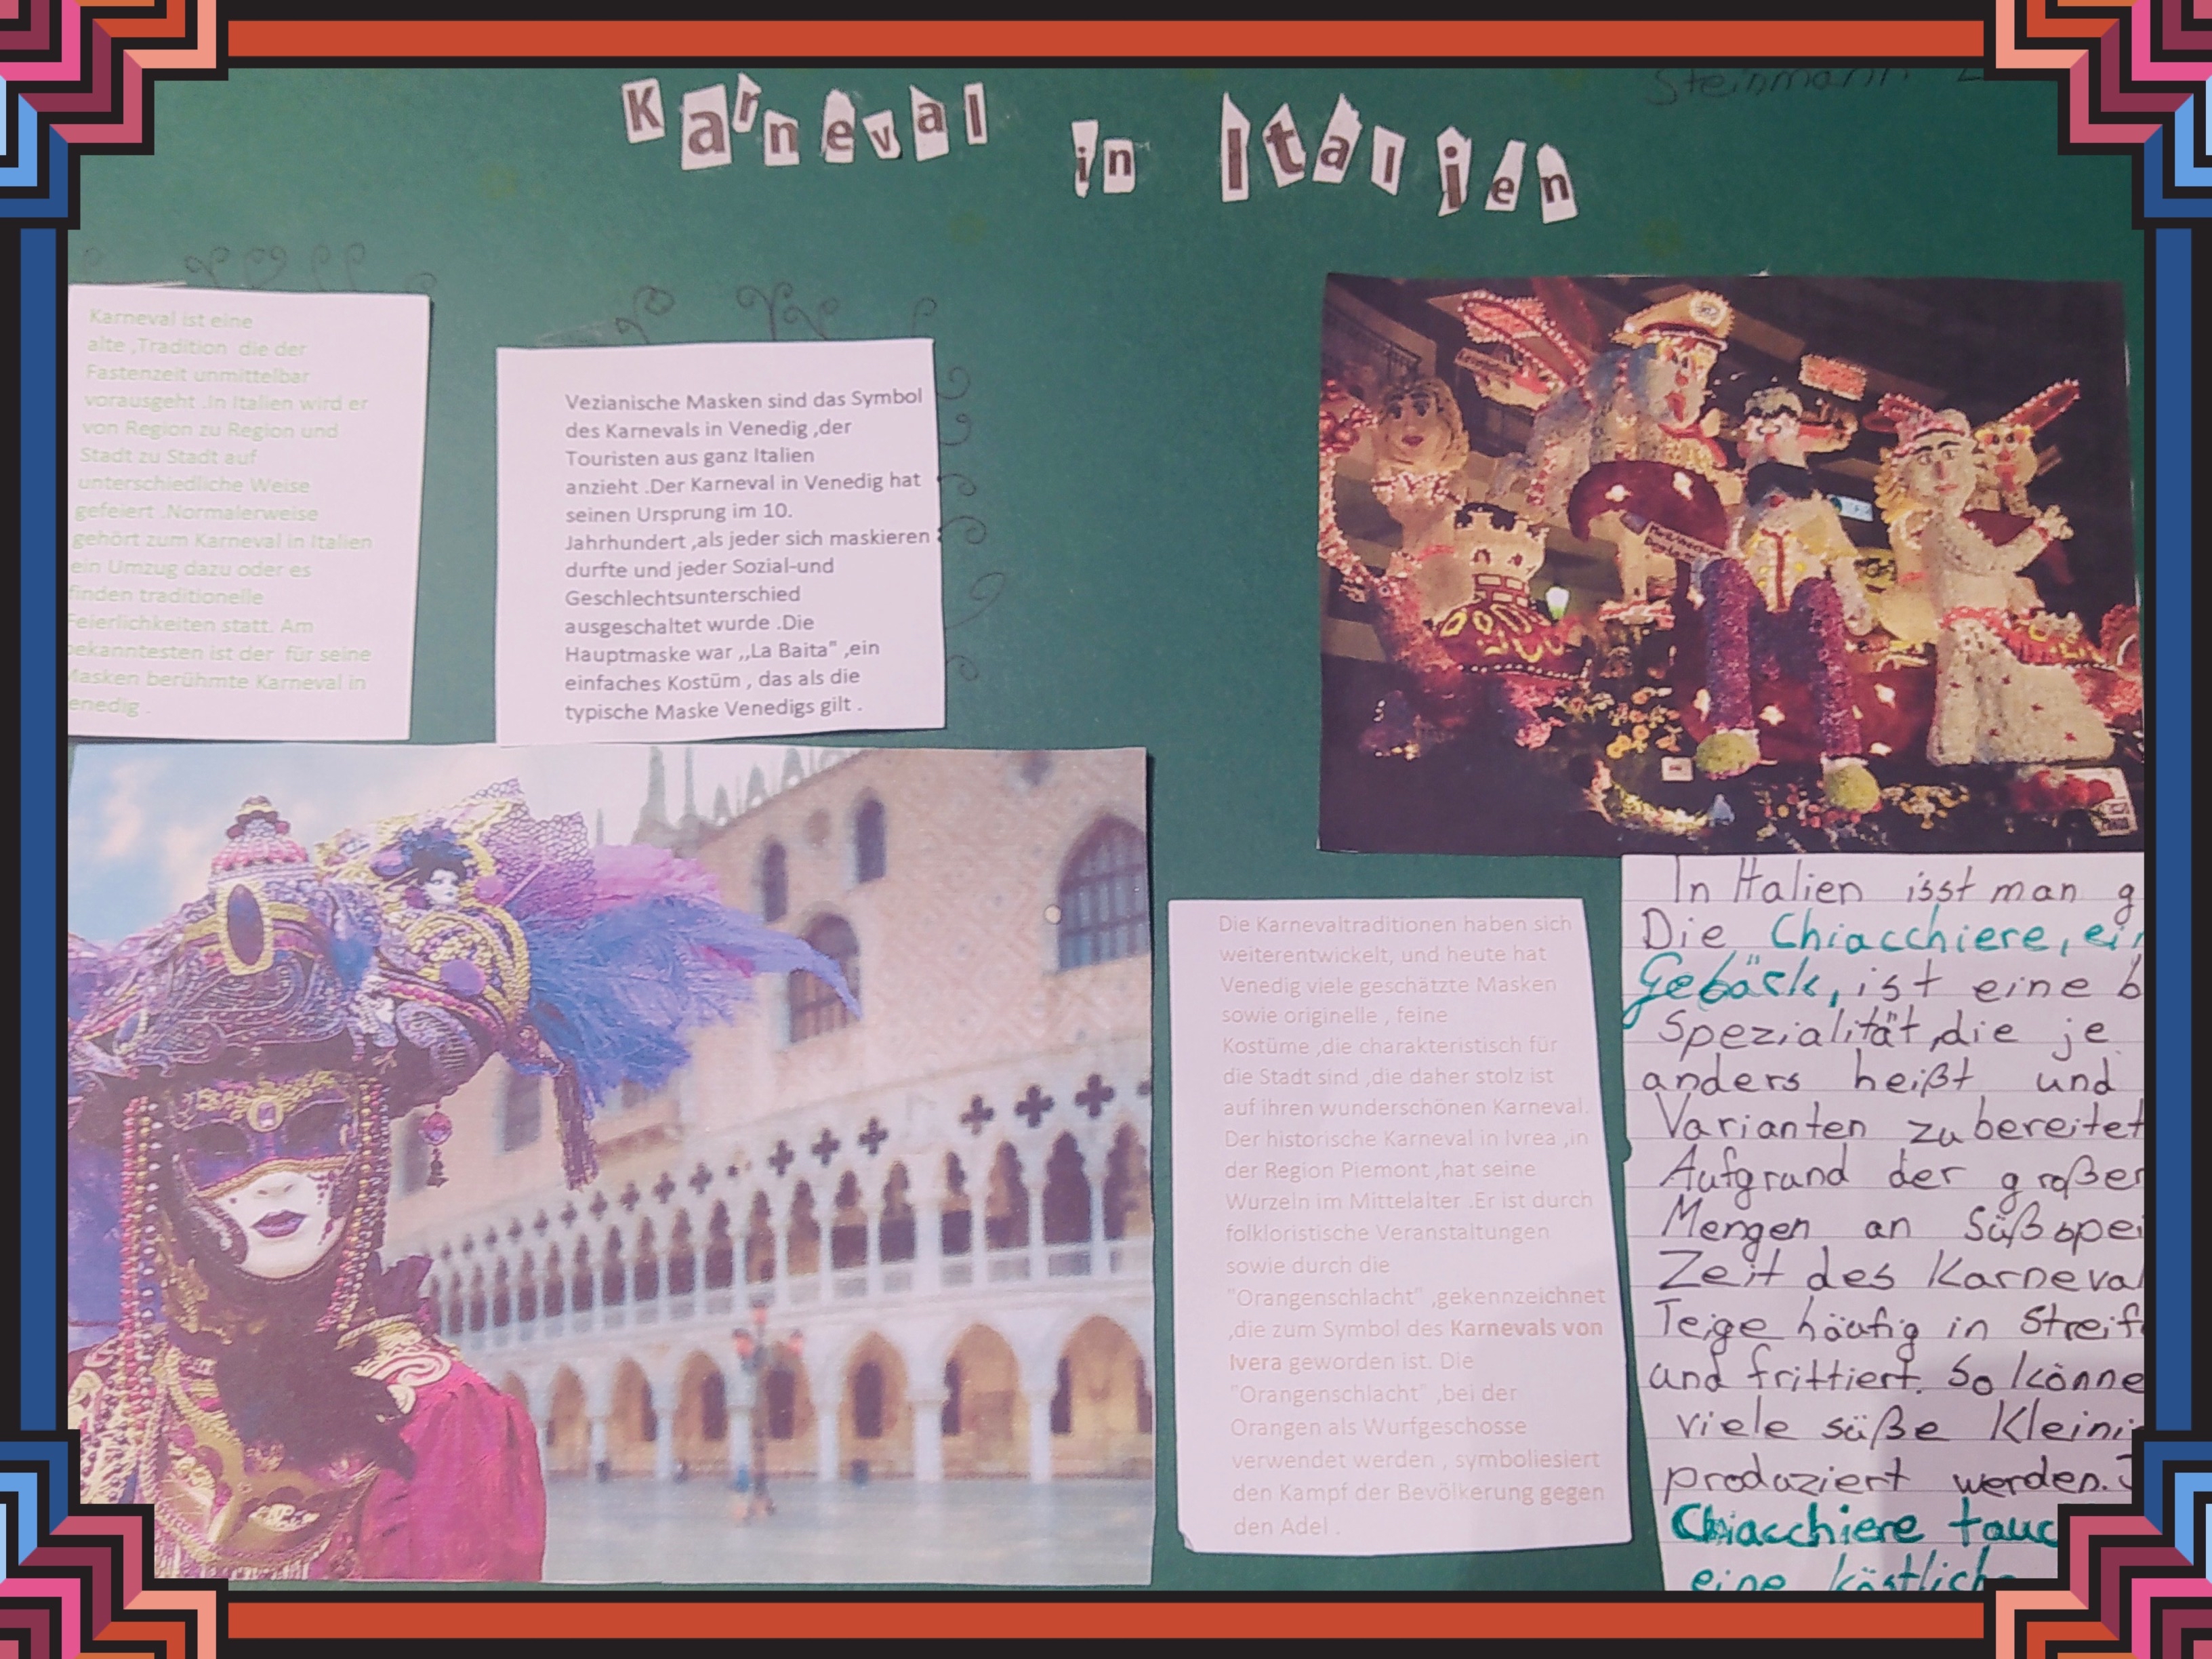 Steinmann
Karneval in Italien
Karneval ist eine
alte ,Tradition die der
Fastenzeit unmittelbar
vorausgeht .In Italien wird er
von Region zu Region und
Stadt zu Stadt auf
unterschiedliche Weise
gefeiert .Normalerweise
gehört zum Karneval in Italien
ein Umzug dazu oder es
finden traditionelle
Feierlichkeiten statt. Am
bekanntesten ist der für seine
Masken berühmte Karneval in
enedig .
Vezianische Masken sind das Symbol
des Karnevals in Venedig ,der
Touristen aus ganz Italien
anzieht .Der Karneval in Venedig hat
seinen Ursprung im 10.
Jahrhundert ,als jeder sich maskieren
durfte und jeder Sozial-und
Geschlechtsunterschied
ausgeschaltet wurde .Die
Hauptmaske war ,,La Baita" ,ein
einfaches Kostüm , das als die
typische Maske Venedigs gilt .
Die Karnevaltraditionen haben sich
weiterentwickelt, und heute hat
Venedig viele geschätzte Masken
sowie originelle , feine
Kostüme ,die charakteristisch für
die Stadt sind ,die daher stolz ist
auf ihren wunderschönen Karneval.
Der historische Karneval in Ivrea ,in
der Region Piemont ,hat seine
Wurzeln im Mittelalter .Er ist durch
folkloristische Veranstaltungen
sowie durch die
"Orangenschlacht" ,gekennzeichnet
,die zum Symbol des Karnevals von
Ivera geworden ist. Die
"Orangenschlacht" ,bei der
Orangen als Wurfgeschosse
verwendet werden , symboliesiert
den Kampf der Bevölkerung gegen
den Adel .
In Italien isst man g
Die Chiacchiere, ein
Gebäck, ist eine b
Spezialität,die je
anders heißt und
Varianten zubereitet
Aufgrund der großer
Mengen an Süßspei
Zeit des Karneval
Teige häufig in Streif
und frittiert. So könne
viele süße Kleini
produziert werden.
Chiacchiere tauc
eine köstlich